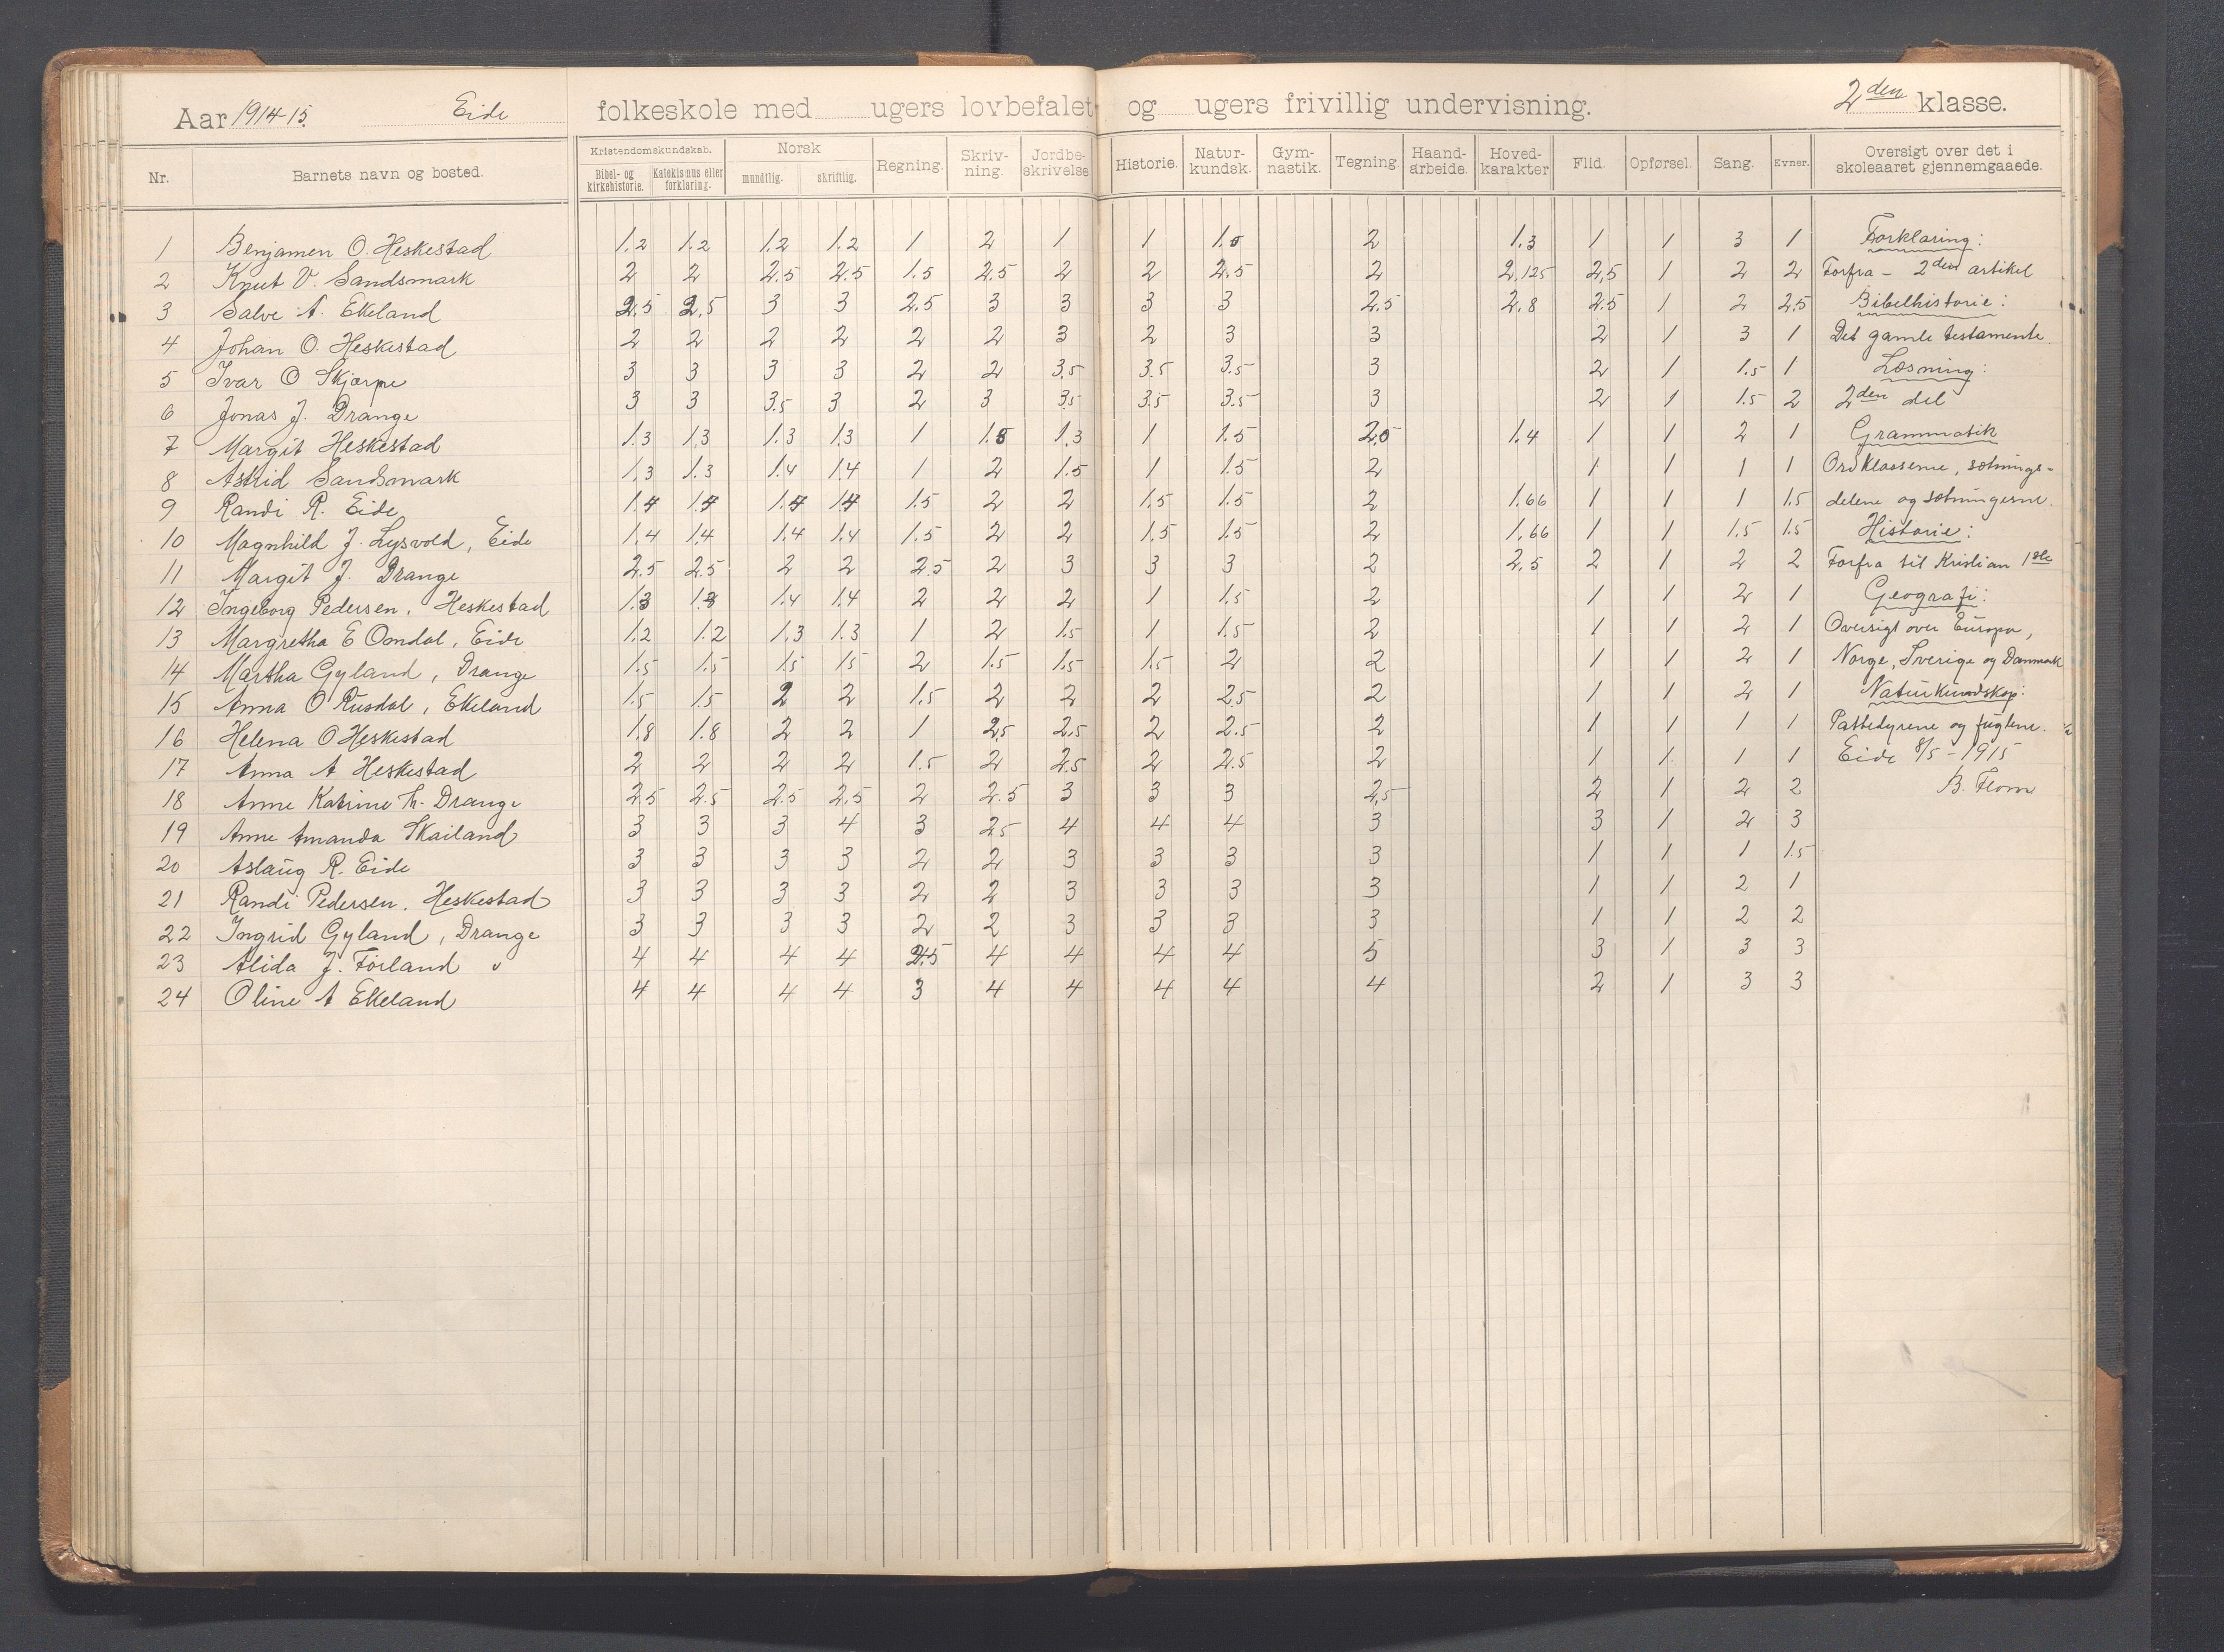 Aar 1914-15. Eide folkeskole med ugers lovbefalet og ugers frivillig undervisning. 2den klasse.
Nr. Barnets navn og bosted. Kristendomskundskab. Bibel- og kirkehistorie. Katekismus eller forklaring. Norsk mundtlig. skriftlig. Regning. Skriv-ning. Jordbe-skrivelse Historie. Natur-kundsk. Gym-nastik. Tegning Haand-arbeide. Hoved-karakter Flid. Opførsel. Sang. Evner. Oversigt over det i skoleaaret gjennemgaaede.
1 Benjamen O. Heskestad 1.2 1.2 1.2 1.2 1 2 1 1 1.5 2 1.3 1 1 3 1 Forklaring:
2 Knut V. Sandsmark 2 2 2.5 2.5 1.5 2.5 2 2 2.5 2 2,125 2,5 1 2 2 Forfra - 2den artikel
3 Salve A. Ekeland 2,5 2,5 3 3 2.5 3 3 3 3 2.5 2,8 2.5 1 2 2,5 Bibelhistorie:
4 Johan O. Heskestad 2 2 2 2 2 2 3 2 3 3 2 1 3 1 Det gamle testamente.
5 Ivar O Skjærpe 3 3 3 3 2 2 3,5 3.5 3.5 3 2 1 1.5 1 Læsning:
6 Jonas J. Drange 3 3 3.5 3 2 3 3.5 3.5 3.5 3 2 1 1.5 2 2den del
7 Margit Heskestad 1.3 1.3 1.3 1.3 1 1.8 1.3 1 1.5 2,5 1.4 1 1 2 1 Grammatik
8 Astrid Sandsmark 1,3 1.3 1.4 1,4 1 2 1.5 1 1.5 2 1 1 1 1 Ordklasserne, sætnings-
9 Randi R. Eide 1.4 1.4 1.4 1.4 1.5 2 2 1,5 1.5 2 1.66 1 1 1 1.5 delene og sætningerne.
10 Magnhild J. Lysvold, Eide 1,4 1,4 1,4 1,4 1.5 2 2 1.5 1.5 2 1,66 1 1 1,5 1.5 Historie:
11 Margit J. Drange 2.5 2.5 2 2 2.5 2 3 3 3 2 2,5 2 1 2 2 Forfra til Kristian 1ste
12 Ingeborg Pedersen, Heskestad 1.3 1.3 1.4 1.4 2 2 2 1 1.5 2 1 1 2 1 Geografi:
13 Margretha E Omdal, Eide 1.2 1.2 1,3 1.3 1 2 1.5 1 1.5 2 1 1 2 1 Oversigt over Europa,
14 Martha Gyland, Drange 1.5 1.5 1.5 1.5 2 1.5 1.5 1.5 2 2 1 1 2 1 Norge, Sverige og Danmark
15 Anna O Rusdal, Ekeland 1.5 1.5 2 2 1.5 2 2 2 2.5 2 1 1 2 1 Naturkundskap:
16 Helena O Heskestad 1.8 1.8 2 2 1 2,5 2,5 2 2.5 2 1 1 1 1 Pattedyrene og fuglene.
17 Anna A Heskestad 2 2 2 2 1.5 2 2.5 2 2.5 2 1 1 1 1 Eide 8/5 - 1915
18 Anne Katrine Th. Drange 2.5 2.5 2.5 2,5 2 2.5 3 3 3 2,5 2 1 2 2 B. Flom
19 Anne Amanda Skailand 3 3 3 4 3 2.5 4 4 4 3 3 1 2 3
20 Aslaug R. Eide 3 3 3 3 2 2 3 3 3 3 1 1 1 1.5
21 Randi Pedersen. Heskestad 3 3 3 3 2 2 3 3 3 3 1 1 2 1
22 Ingrid Gyland, Drange 3 3 3 3 2 2 3 3 3 3 1 1 2 2
23 Alida J. Förland " 4 4 4 4 2.5 4 4 4 4 5 3 1 3 3
24 Oline A Ekeland 4 4 4 4 3 4 4 4 4 4 2 1 3 3